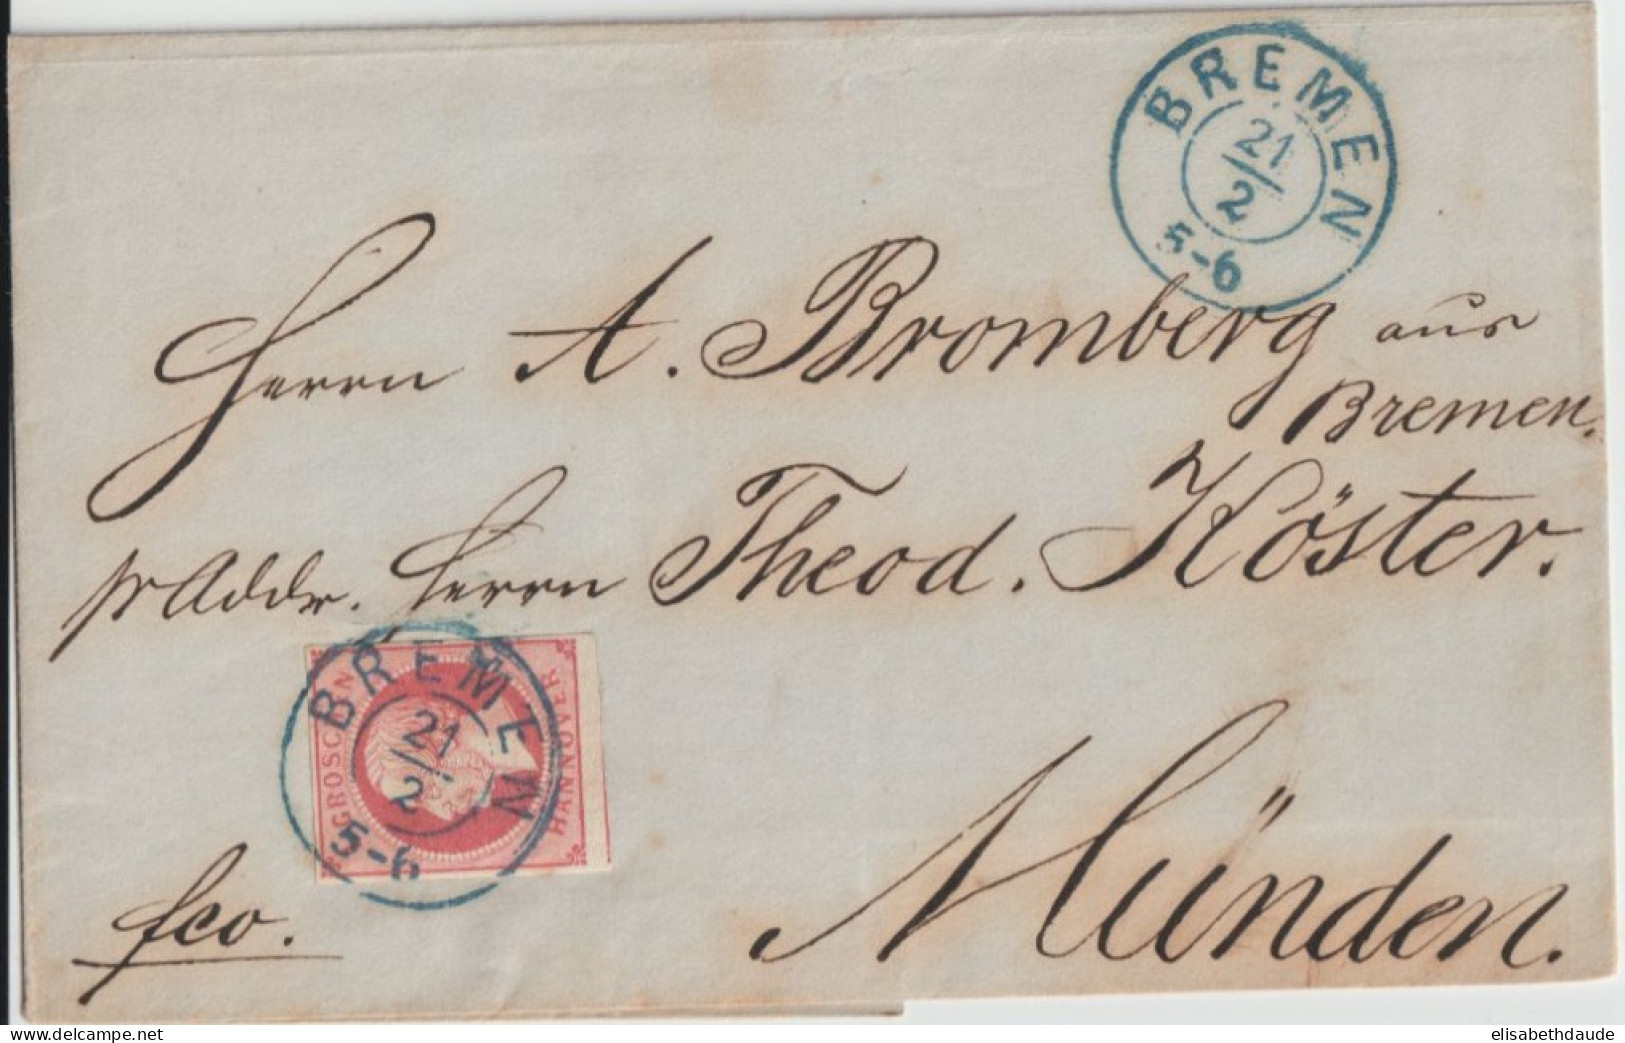 BREMEN
21/2
5-6
Herrn A. Bromberg aus
Bremen.
pr Addr. Herrn Theod. Köster.
BREMEN
21/2
5-6
GROSCHEN
HANNOVER
fco.
Münden.
delcampe.net
elisabethdaude